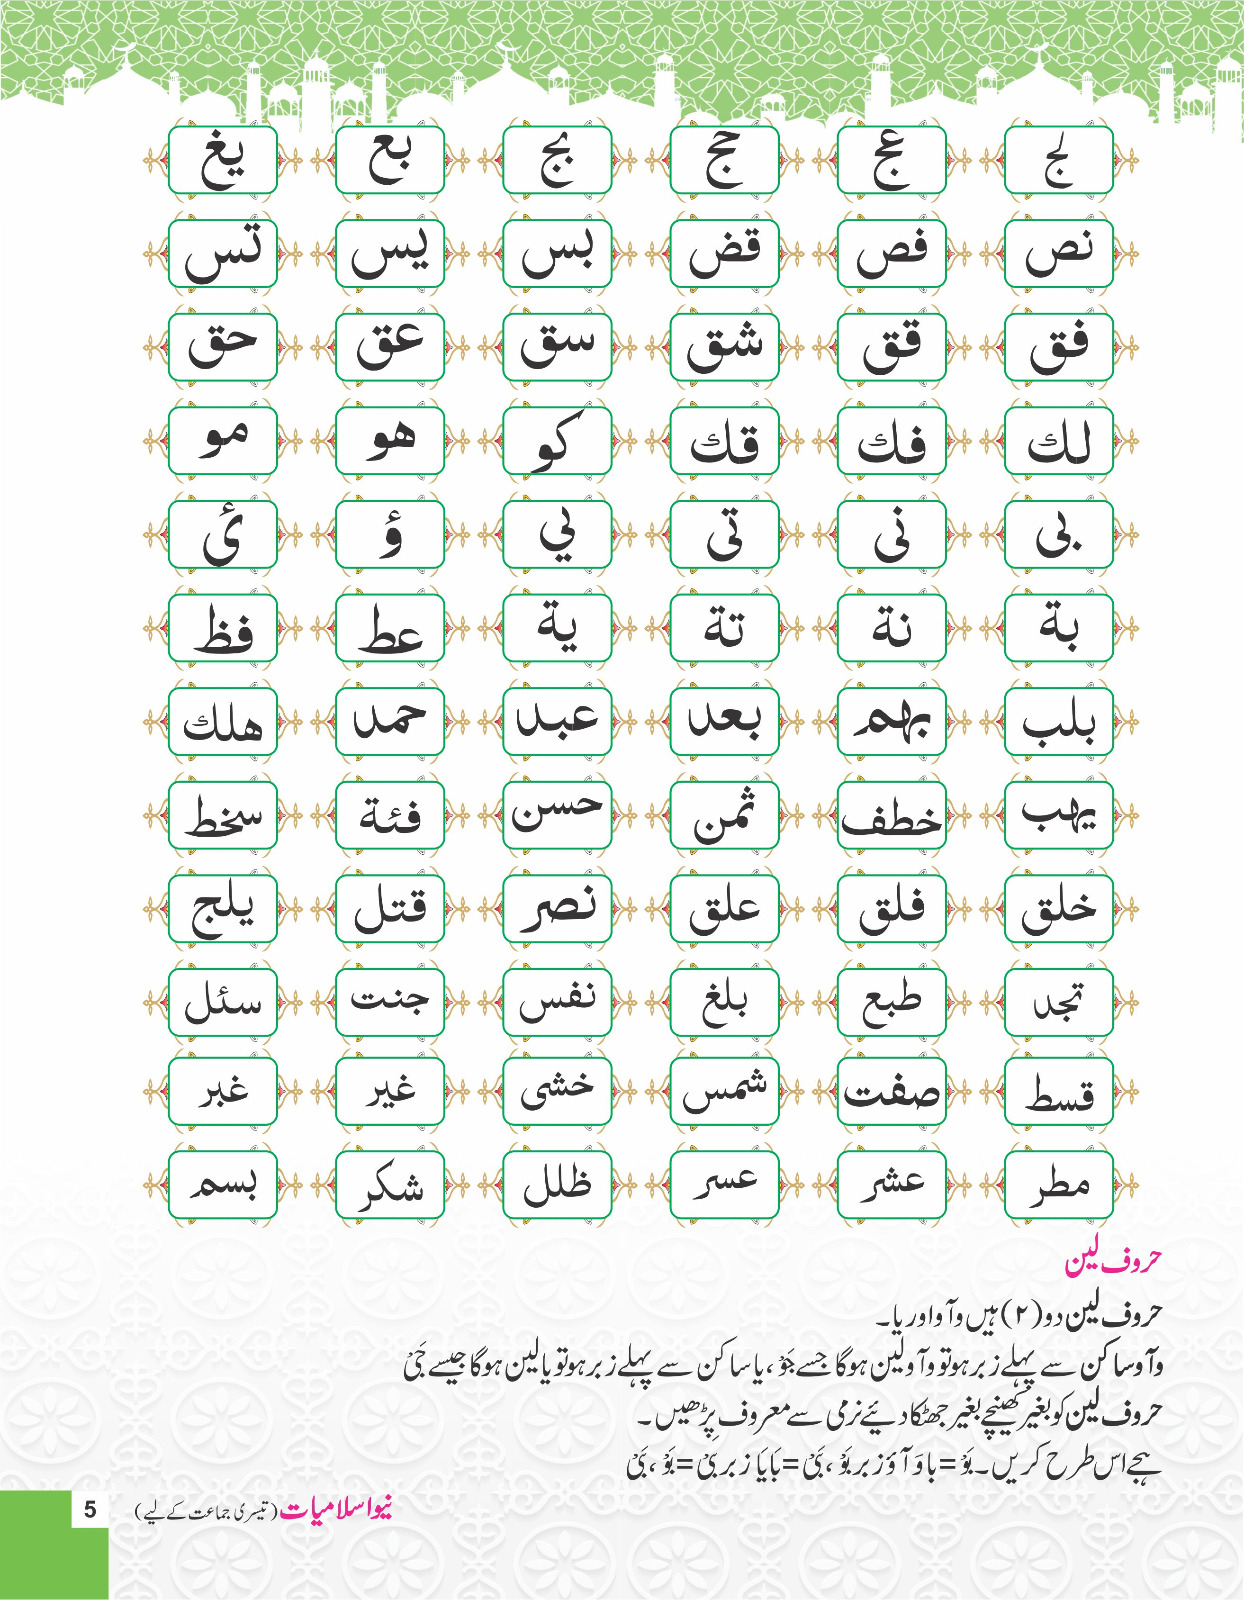 لج عج حج بج بع يغ
نص فص قض بس يس تس
فق قق شق سق عق حق
لك فك قك كو هو مو
بى نى تى يي ؤ ئ
بة نة تة ية عط فظ
بلب بهم بعد عبد حمد هلك
يهب خطف ثمن حسن فئة سخط
خلق فلق علق نصر قتل يلج
تجد طبع بلغ نفس جنت سئل
قسط صفت شمس خشى غير غبر
مطر عشر عسر ظلل شكر بسم
حروف لین
حروف لین دو (۲) ہیں وآو اور یا۔
وآوساکن سے پہلے زبر ہوتو وآولین ہوگا جسے جَوْ ، یاساکن سے پہلے زبر ہوتو یالین ہوگا جیسے جَیْ
حروف لین کو بغیر کھینچے بغیر جھٹکا دیئے نرمی سے معروف پڑھیں۔
ہجے اس طرح کریں۔ بَوْ = باوَ آ ؤ زبر بَوْ ، بَیْ = بَایَا زبر بَیْ = بَوْ ، بَیْ
نیو اسلامیات (تیسری جماعت کے لیے) 5